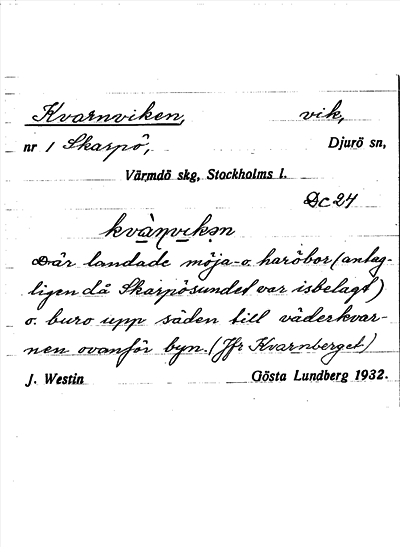 Kvarnviken, vik,
nr 1 Skarpö, Djurö sn,
Värmdö skg, Stockholms l.
Dc 24
kvànvikən
Där landade möja- o. haröbor (antag-
ligen då Skarpösundet var isbelagt)
o. buro upp säden till väderkvar-
nen ovanför byn. (Jfr Kvarnberget)
J. Westin Gösta Lundberg 1932.